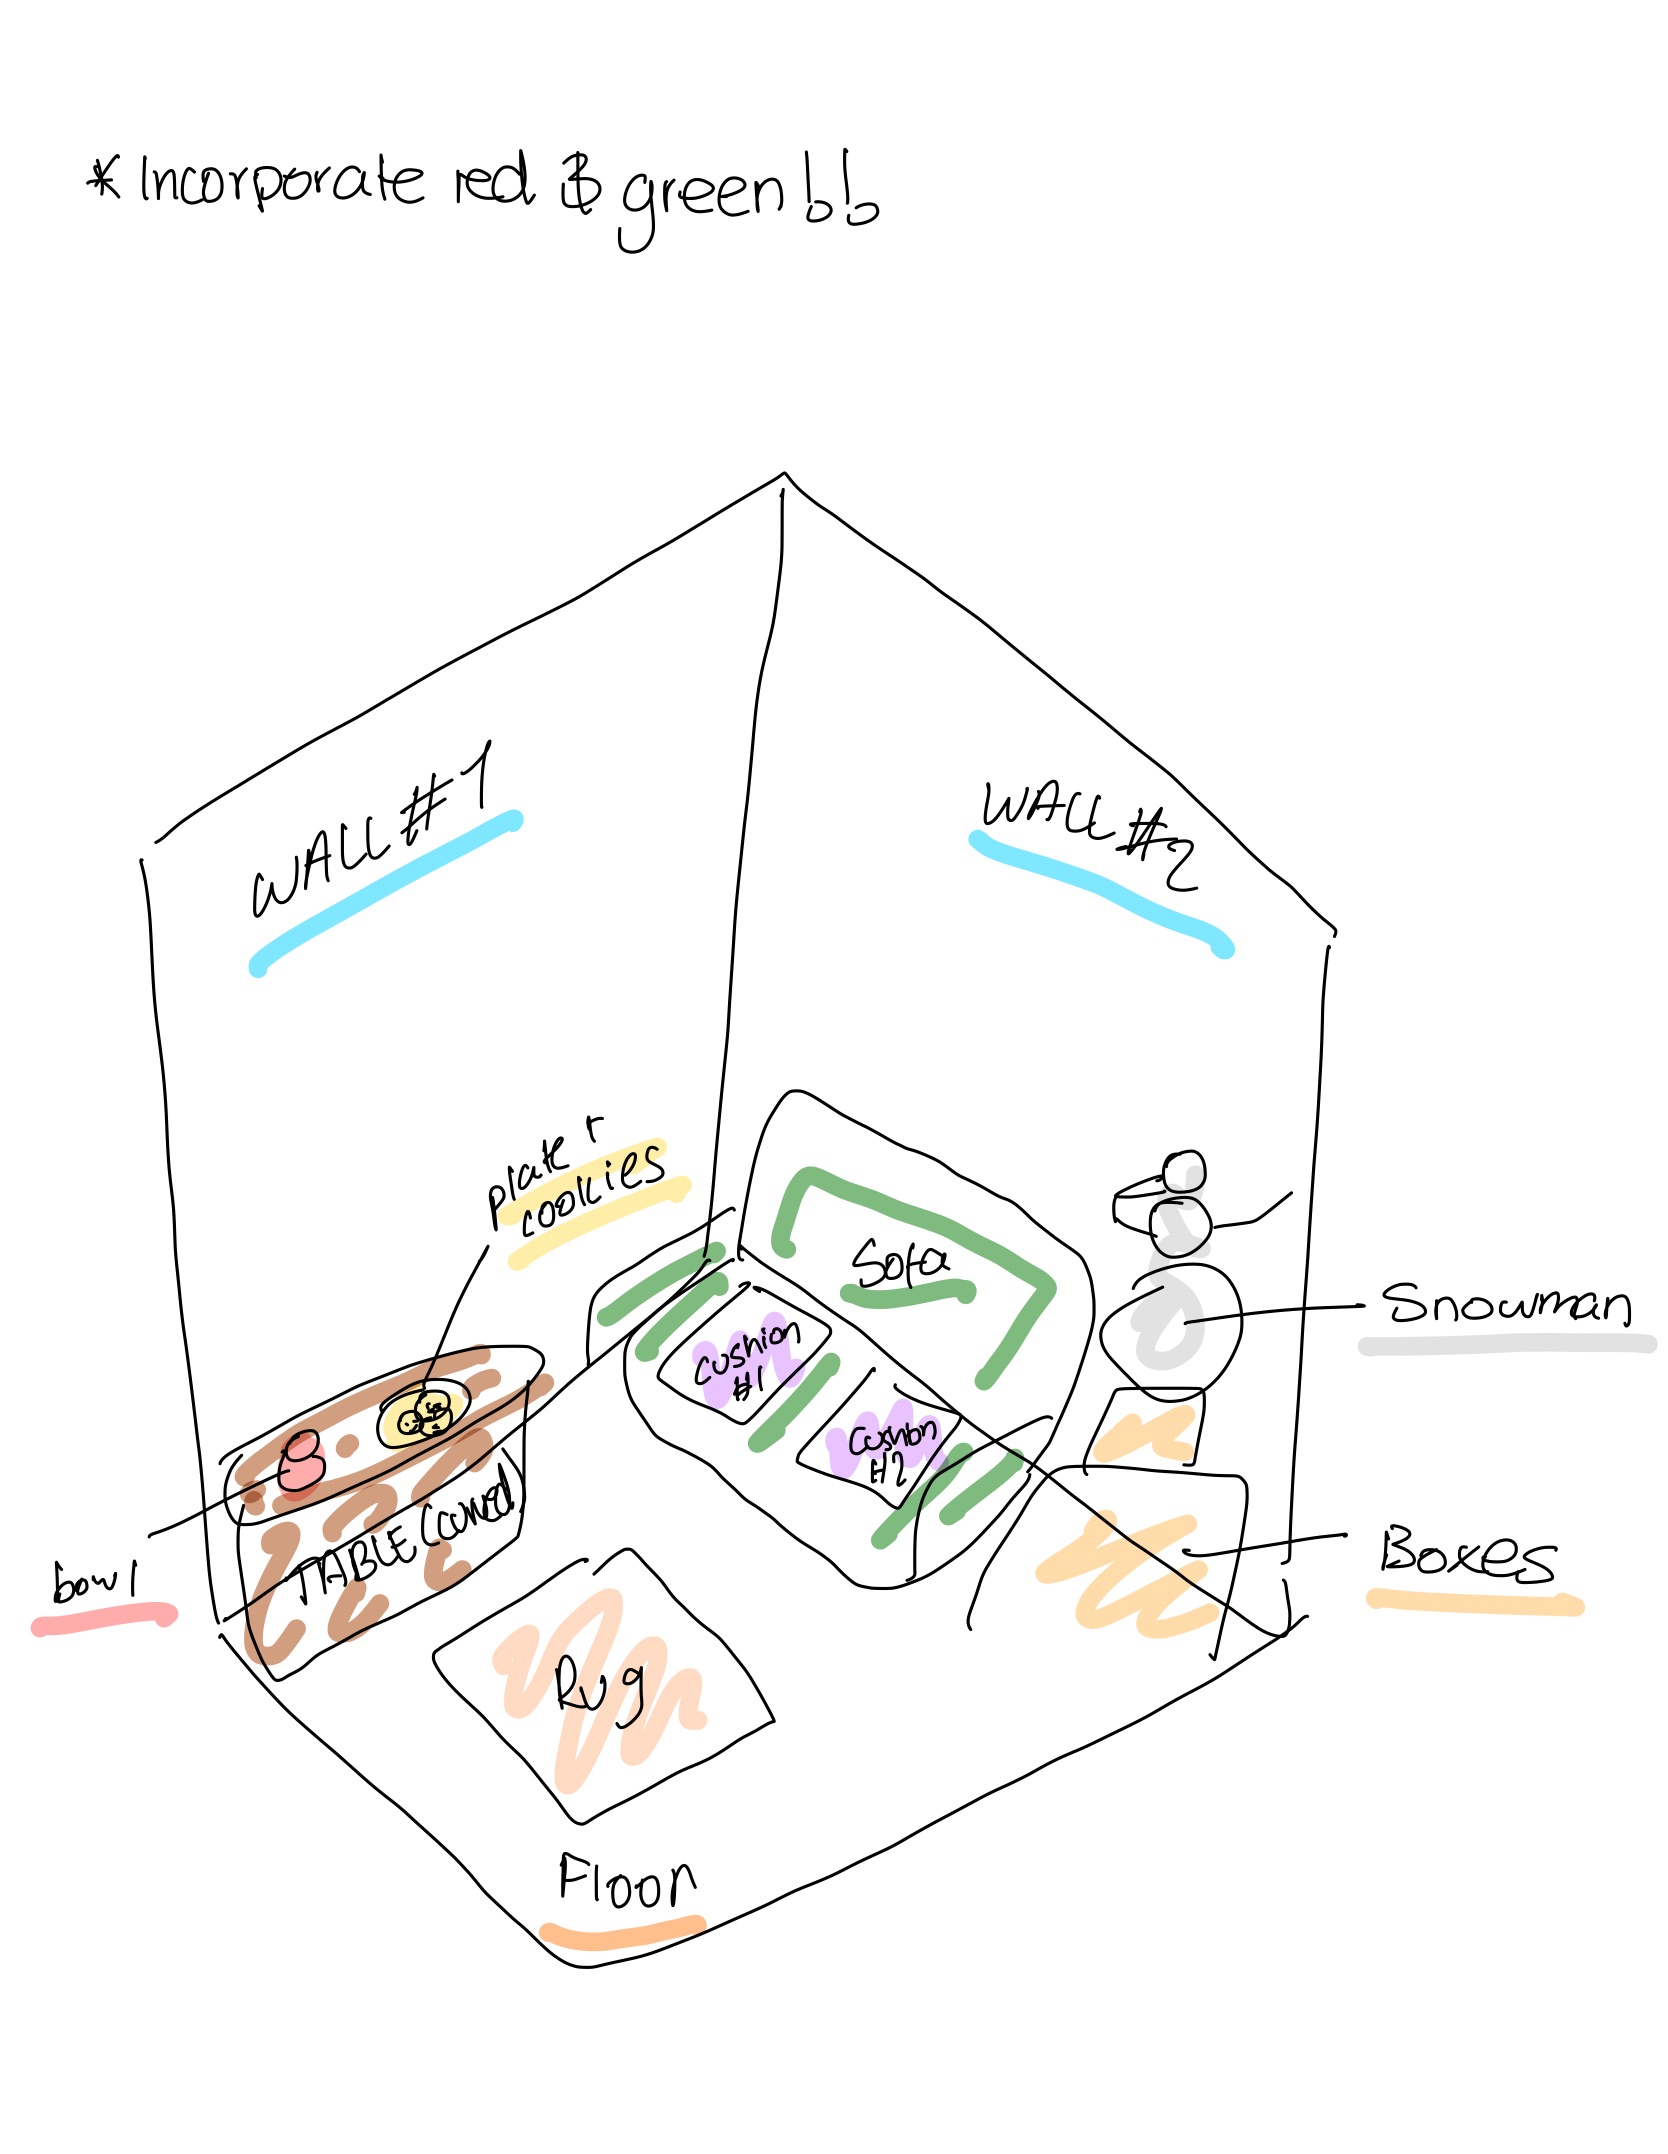 * Incorporate red & green!!
WALL #1
WALL #2
plate +
cookies
Sofa
cushion
#1
cushion
#2
Snowman
TABLE (curved)
bowl
Boxes
Rug
Floor